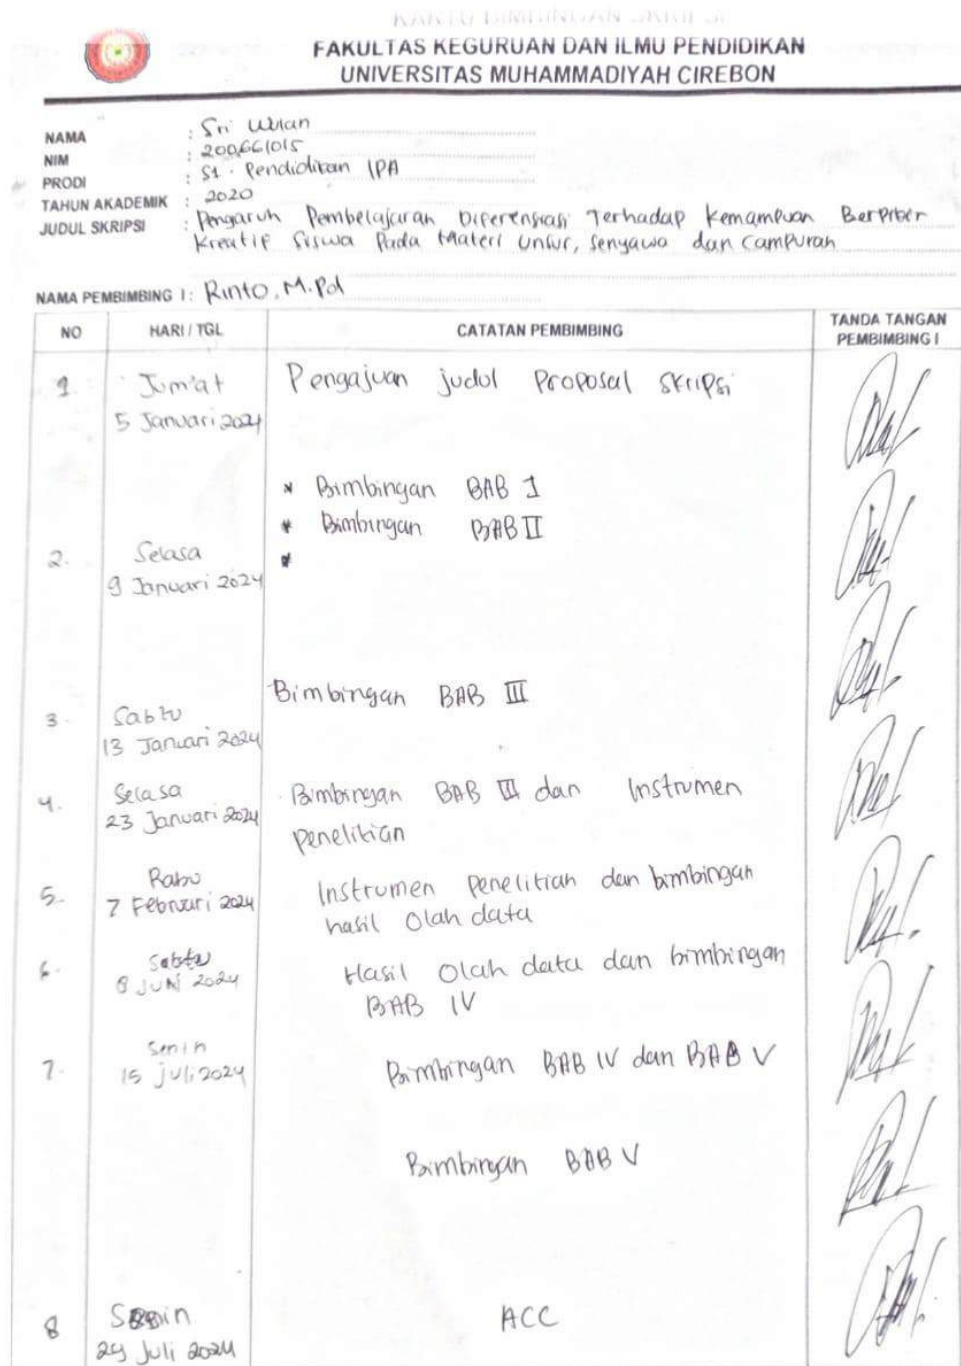 KARTU BIMBINGAN SKRIPSI
FAKULTAS KEGURUAN DAN ILMU PENDIDIKAN
UNIVERSITAS MUHAMMADIYAH CIREBON
NAMA : Sri Wulan
NIM : 200661015
PRODI : S1. Pendidikan IPA
TAHUN AKADEMIK : 2020
JUDUL SKRIPSI : Pengaruh Pembelajaran Diferensiasi Terhadap Kemampuan Berpikir
Kreatif Siswa Pada Materi Unsur, Senyawa dan Campuran
NAMA PEMBIMBING I: Rinto, M.Pd
NO HARI / TGL CATATAN PEMBIMBING TANDA TANGAN PEMBIMBING I
1. Jum'at Pengajuan judul Proposal Skripsi
5 Januari 2024
* Bimbingan BAB I
* Bimbingan BAB II
2. Selasa *
9 Januari 2024
Bimbingan BAB III
3. Sabtu
13 Januari 2024
4. Selasa Bimbingan BAB III dan Instrumen
23 Januari 2024 Penelitian
5. Rabu Instrumen Penelitian dan bimbingan
7 Februari 2024 hasil Olah data
6. Sabtu Hasil Olah data dan bimbingan
8 Juni 2024 BAB IV
7. Senin Bimbingan BAB IV dan BAB V
15 juli 2024
Bimbingan BAB V
8 Senin ACC
29 Juli 2024